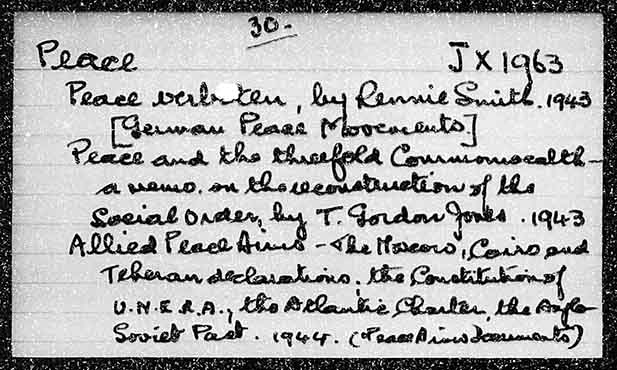 30.
Peace JX1963
Peace verboten, by Rennie Smith. 1943
[German Peace Movements]
Peace and the threefold Commonwealth -
a memo. on the reconstruction of the
Social Order, by T. Gordon Jones. 1943
Allied Peace Aims - The Moscow, Cairo and
Teheran declarations; the Constitution of
U.N.R.R.A.; the Atlantic Charter, the Anglo-
Soviet Pact. 1944. (Peace Aims Documents)